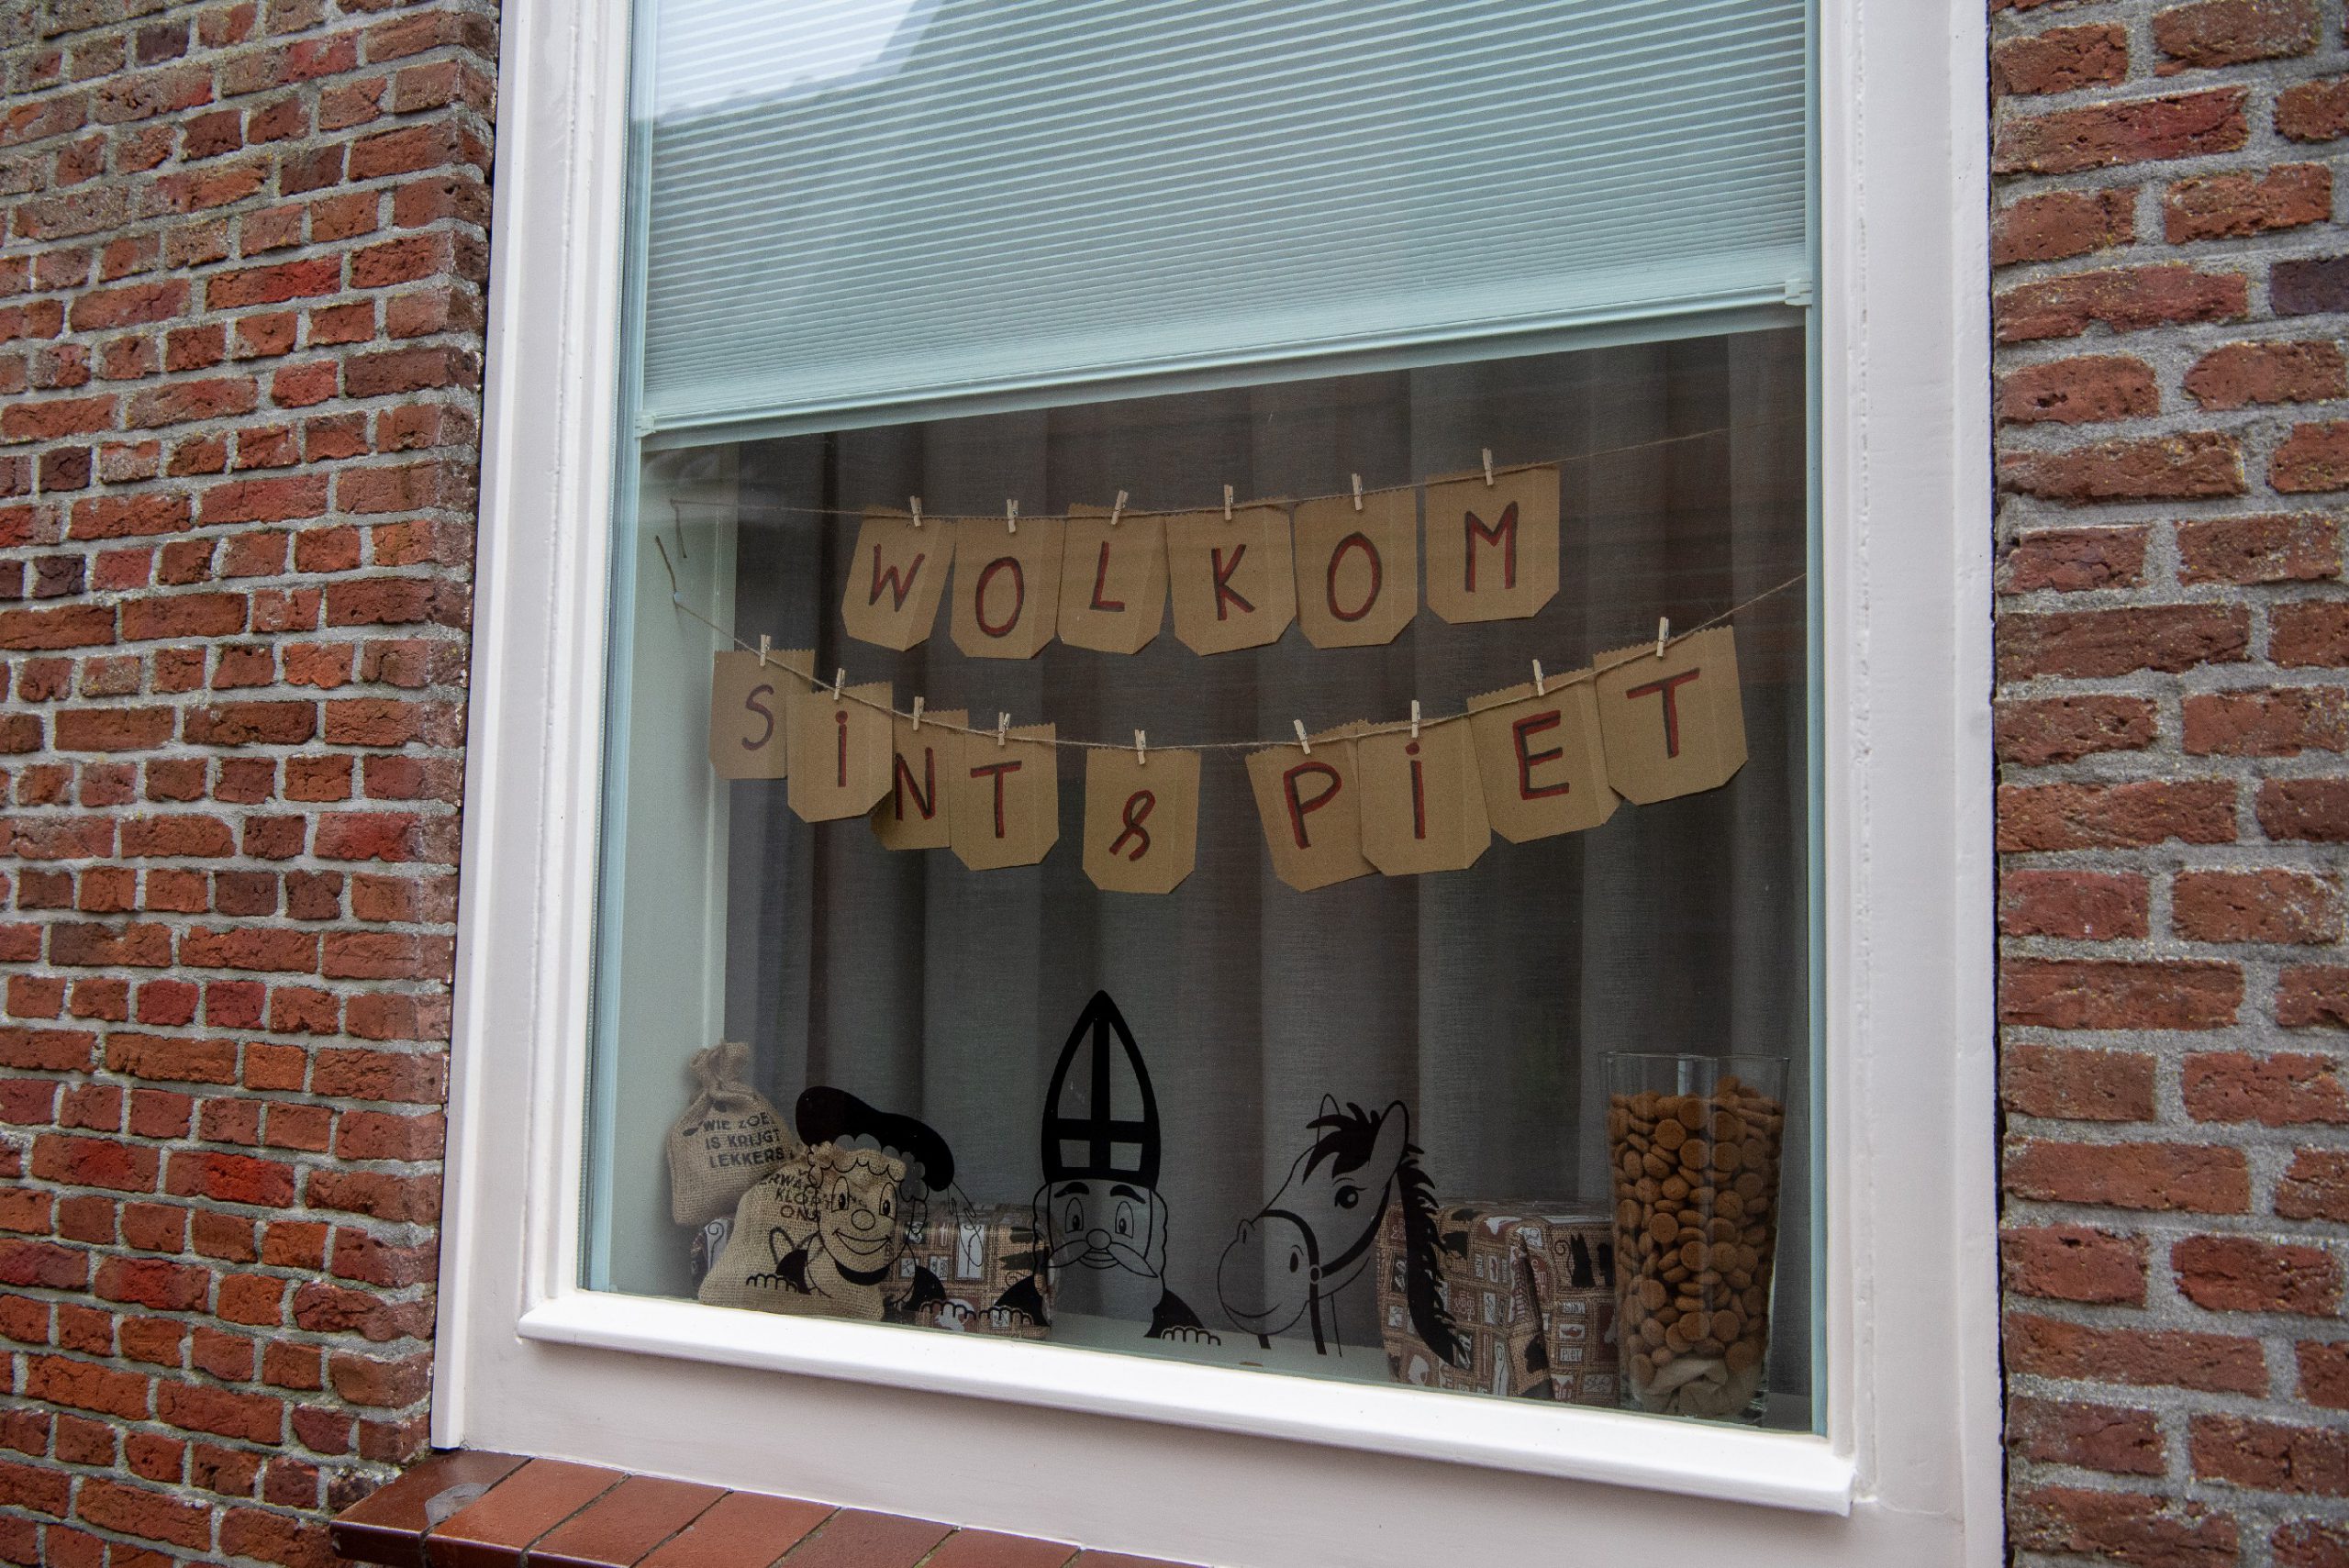 WOLKOM
SiNT & PiET
WIE ZOET
IS KRIJGT
LEKKERS
KLO
ON